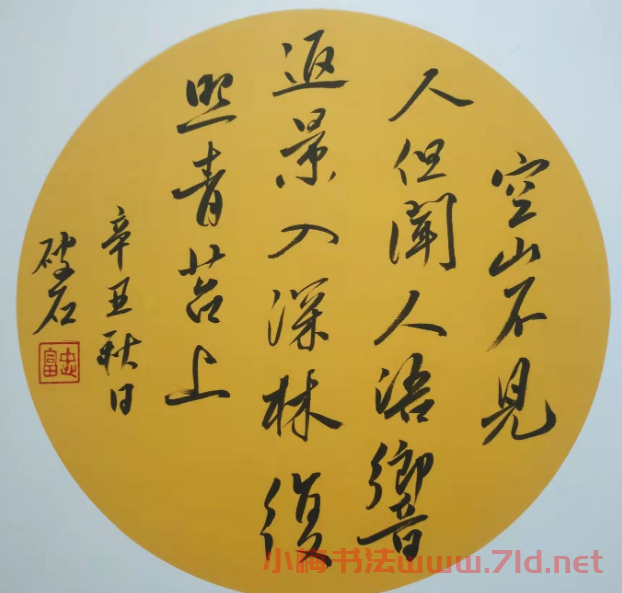 空山不見
人但聞人語響
返景入深林復
照青苔上
辛丑秋日
破石
忠富
小梅书法www.7ld.net